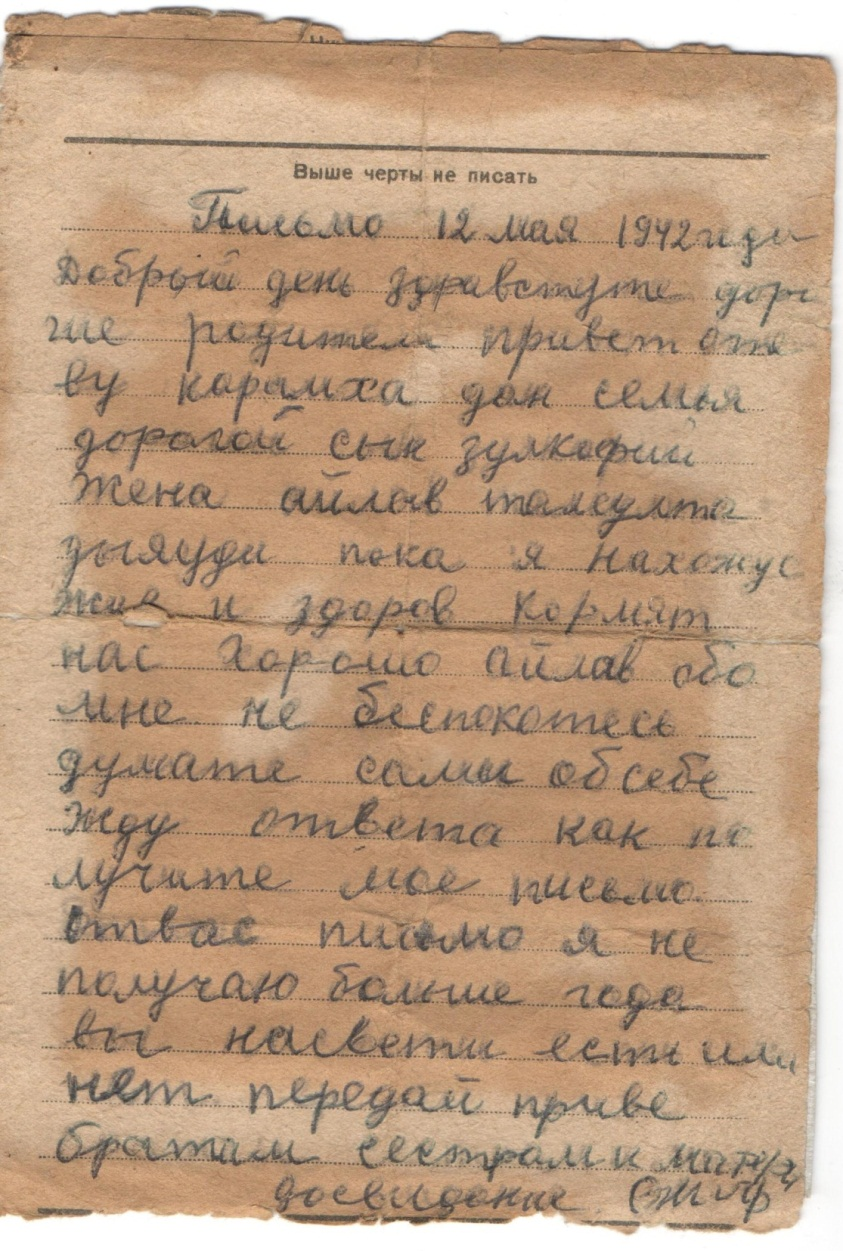 Выше черты не писать
Письмо 12 мая 1942 года
Добрый день здравстуте доро
гие родители привет отц
ву карамха дон семья
дорогой сын зулкофий
Жена айлав
пока я нахожус
жив и здоров Кормят
нас хорошо айлав обо
мне не беспокотесь
думате самы обсебе
Жду ответа как по
лучите мое письмо
отвас письмо я не
получаю больше года
вы насвети есть или
нет передай приве
братам сестрам и матери
досвидание